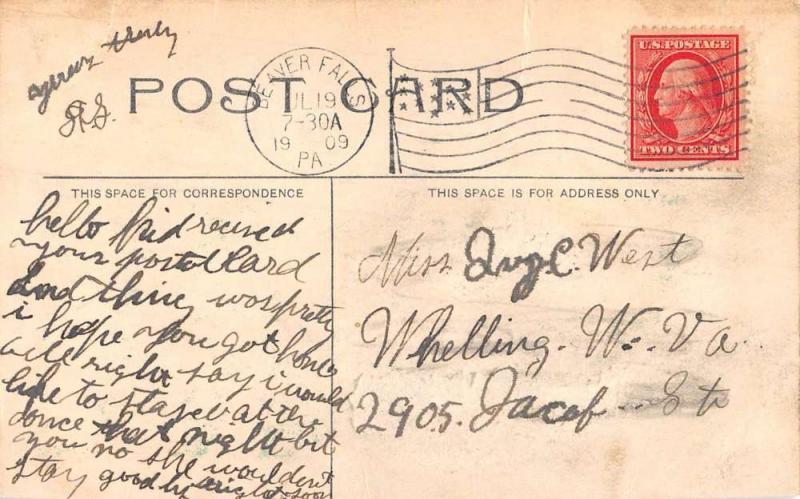 yours truly
A.S.
POST CARD
BEAVER FALLS
JUL 19
7-30A
19 09
PA
U.S. POSTAGE
TWO CENTS
THIS SPACE FOR CORRESPONDENCE
THIS SPACE IS FOR ADDRESS ONLY
hello Kid received
your postal Card
and thine was pretty
i hope you got home
all right say i would
like to stayed after
dance that night but
you no she wouldent
stay good by soon
Miss Ivy C. West
Whelling. W. Va.
2905. Jacob. St